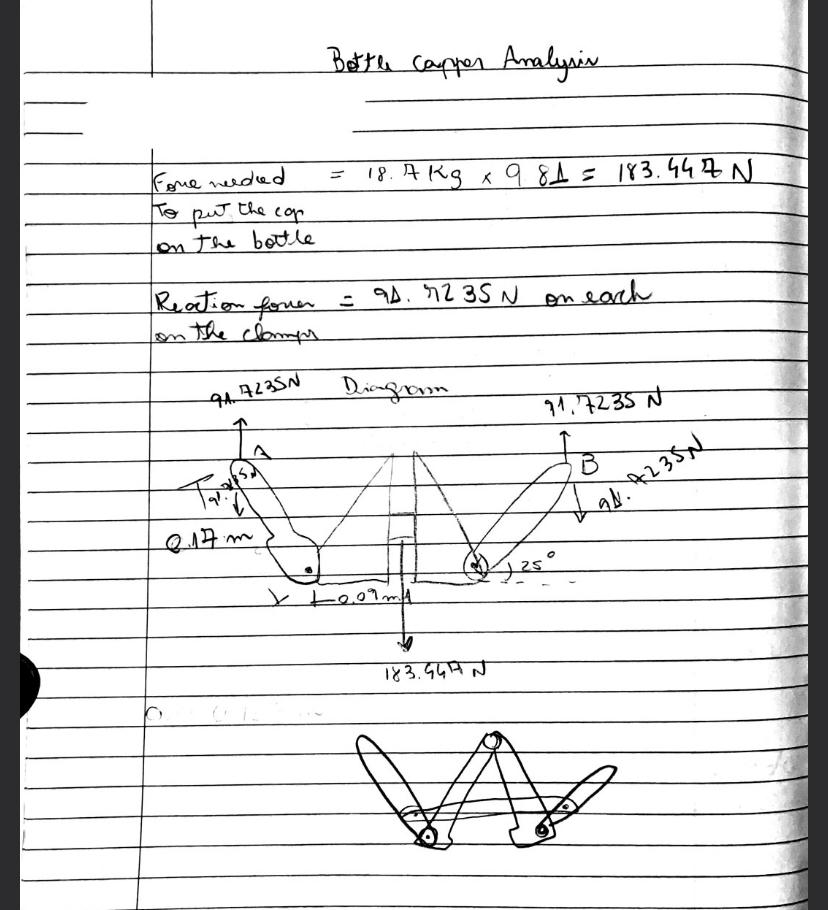 Bottle capper Analysis
Force needed = 18.7 Kg x 9.81 = 183.447 N
To put the cap
on the bottle
Reaction forces = 91.7235 N on each
on the clamps
91.7235N Diagram 91.7235 N
A B
91.7235N 91.7235N
0.17 m
25°
0.09m
183.447 N